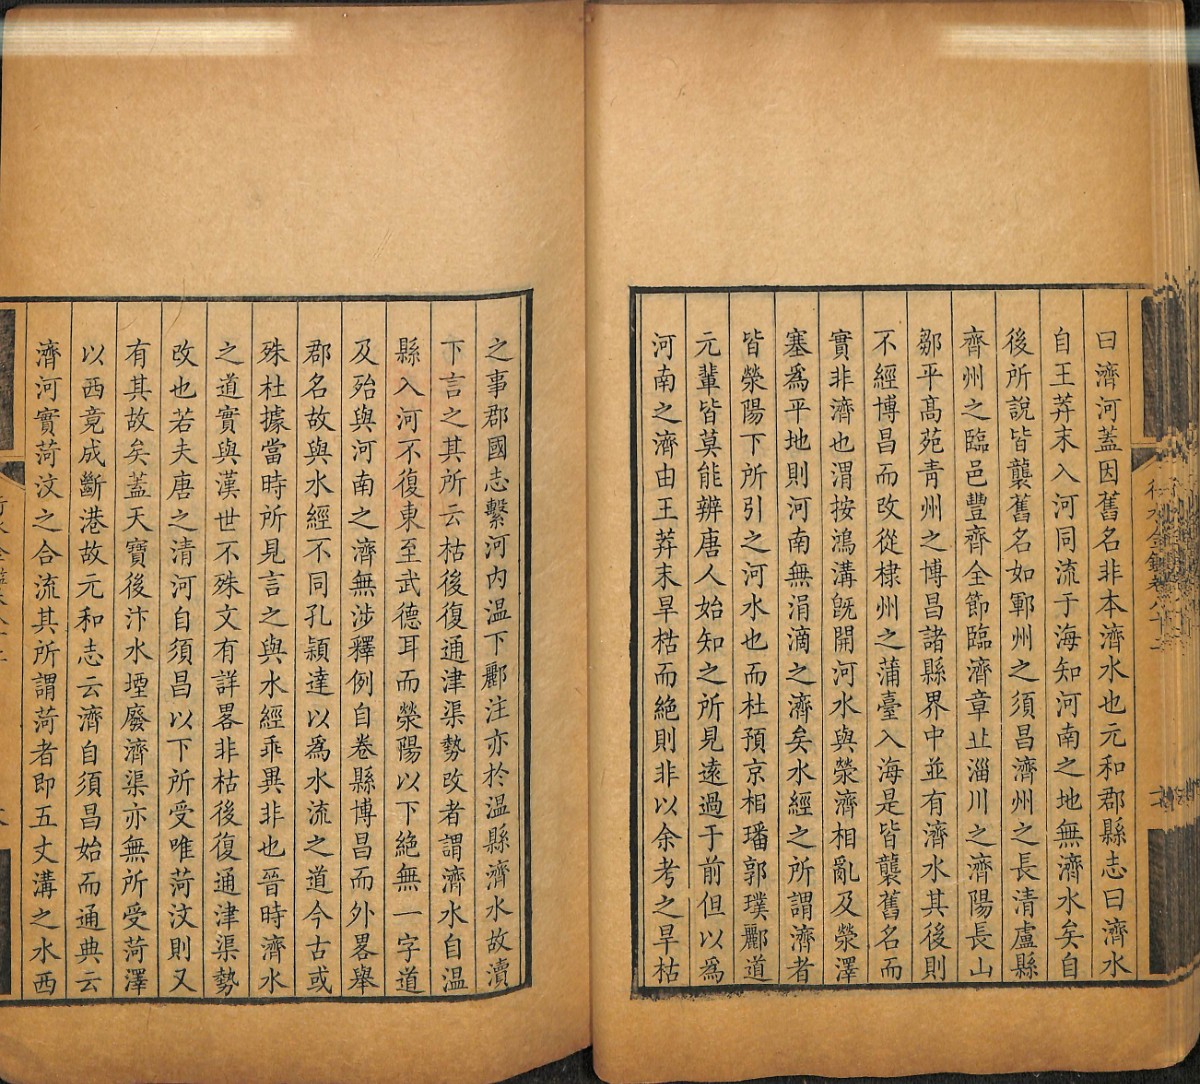 曰濟河蓋因舊名非本濟水也元和郡縣志曰濟水
自王莽末入河同流于海知河南之地無濟水矣自
後所說皆襲舊名如鄆州之須昌濟州之長清盧縣
齊州之臨邑豐齊全節臨濟章丠淄川之濟陽長山
鄒平髙苑青州之博昌諸縣界中並有濟水其後則
不經博昌而改從棣州之蒲臺入海是皆襲舊名而
實非濟也渭按鴻溝旣開河水與滎濟相亂及滎澤
塞爲平地則河南無涓滴之濟矣水經之所謂濟者
皆滎陽下所引之河水也而杜預京相璠郭璞酈道
元輩皆莫能辨唐人始知之所見遠過于前但以爲
河南之濟由王莽末旱枯而絶則非以余考之旱枯
之事郡國志繫河内温下酈注亦於温縣濟水故瀆
下言之其所云枯後復通津渠勢改者謂濟水自温
縣入河不復東至武德耳而滎陽以下絶無一字道
及殆與河南之濟無涉釋例自卷縣博昌而外畧舉
郡名故與水經不同孔頴達以爲水流之道今古或
殊杜據當時所見言之與水經乖異非也晉時濟水
之道實與漢世不殊文有詳畧非枯後復通津渠勢
改也若夫唐之清河自須昌以下所受唯菏汶則又
有其故矣蓋天寶後汴水堙廢濟渠亦無所受菏澤
以西竟成斷港故元和志云濟自須昌始而通典云
濟河實菏汶之合流其所謂菏者即五丈溝之水西